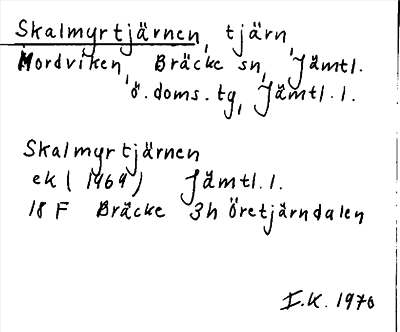 Skalmyrtjärnen, tjärn,
Mordviken, Bräcke sn, Jämtl.
ö. doms. tg, Jämtl. l.
Skalmyrtjärnen
ek (1969) Jämtl. l.
18 F Bräcke 3h Öretjärndalen
I.K. 1970